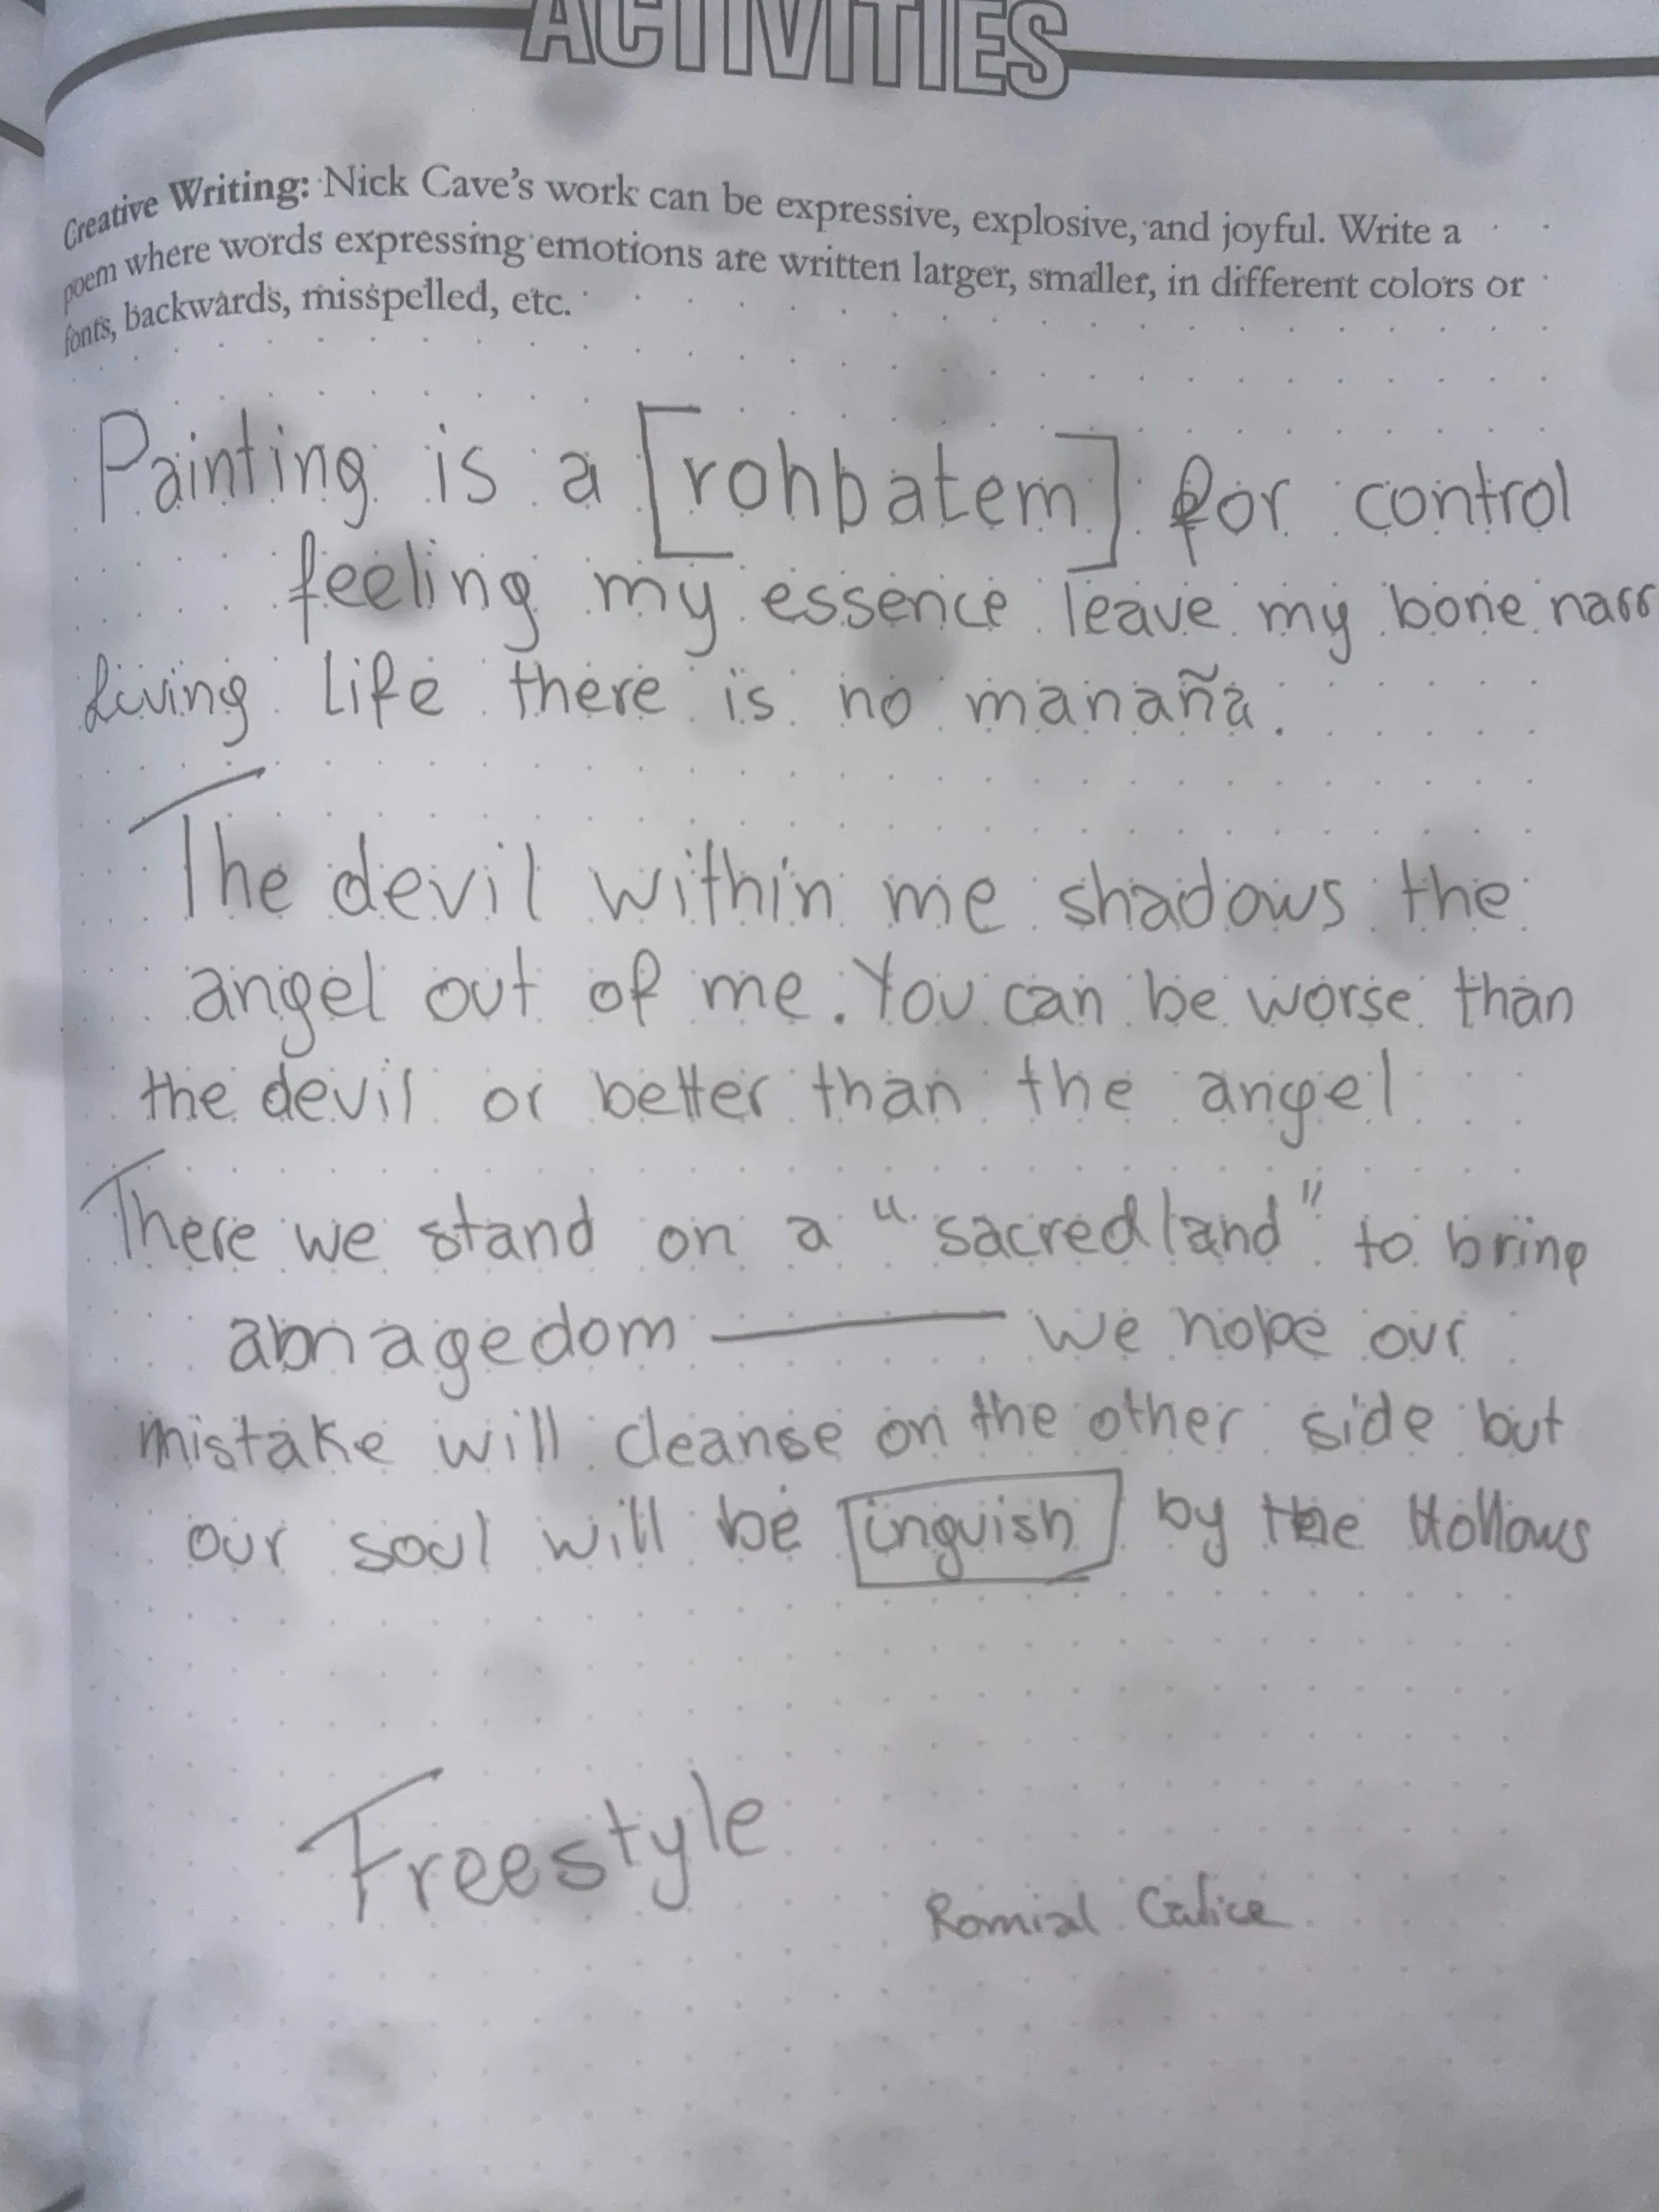 ACTIVITIES
Creative Writing: Nick Cave's work can be expressive, explosive, and joyful. Write a
poem where words expressing emotions are written larger, smaller, in different colors or
fonts, backwards, misspelled, etc.
Painting is a [rohbatem] for control
feeling my essence leave my bone narr
Living Life there is no manaña.
The devil within me shadows the
angel out of me. You can be worse than
the devil or better than the angel
There we stand on a "sacred land" to bring
abnagedom — we hope our
mistake will cleanse on the other side but
our soul will be inguish by the Hollows
Freestyle